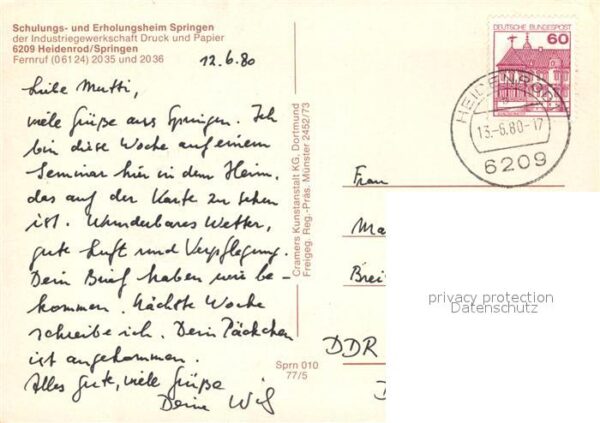 Schulungs- und Erholungsheim Springen
der Industriegewerkschaft Druck und Papier
6209 Heidenrod/Springen
Fernruf (06124) 2035 und 2036
12.6.80
Liebe Mutti,
viele Grüße aus Springen. Ich
bin diese Woche auf einem
Seminar hier in dem Heim,
das auf der Karte zu sehen
ist. Wunderbares Wetter,
gute Luft und Verpflegung.
Dein Brief haben wir be-
kommen. Nächste Woche
schreibe ich. Dein Päckchen
ist angekommen.
Alles Gute, viele Grüße
Deine
Cramers Kunstanstalt KG, Dortmund
Freigeg. Reg.-Präs. Münster 2452/73
Sprn 010
77/5
DEUTSCHE BUNDESPOST
60
HEIDENROD
13.-6.80-17
6209
Frau
Ma
Brei
DDR
privacy protection
Datenschutz